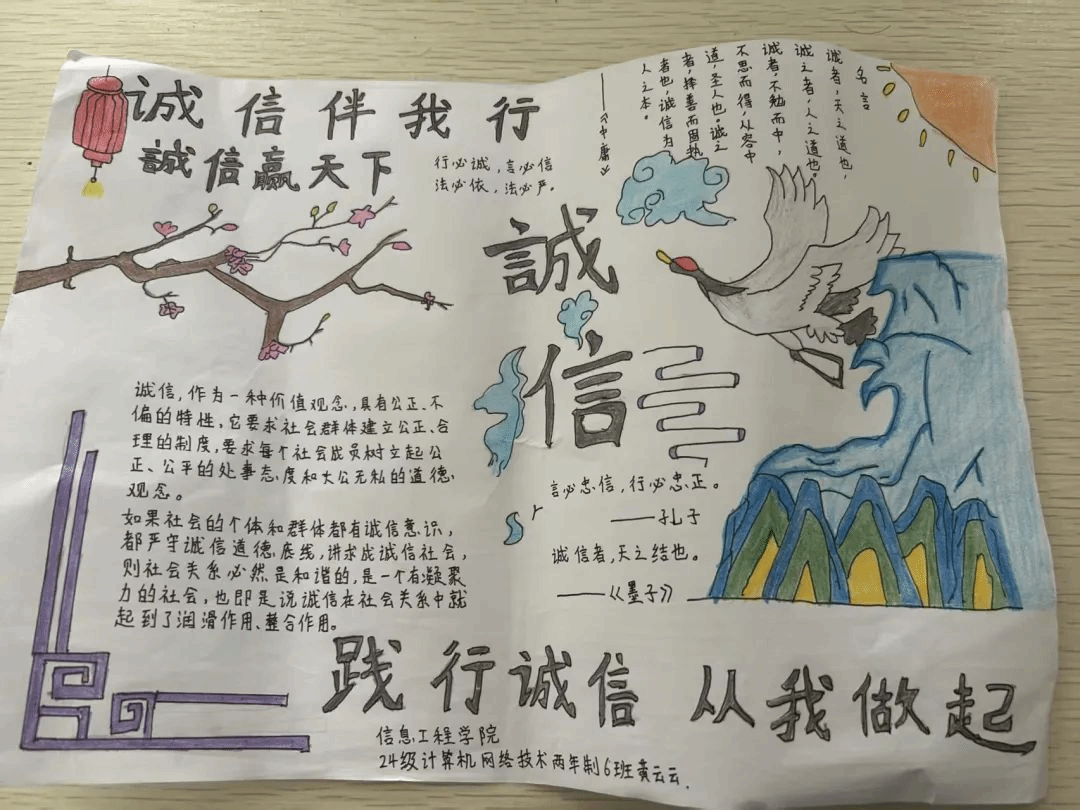 诚信伴我行
誠信赢天下
行必诚，言必信
法必依，法必严。
名言
诚者，天之道也，
诚之者，人之道也，
诚者，不勉而中，
不思而得，从容中
道，圣人也。诚之
者，择善而固执
者也，诚信为
人之本。
——《中庸》
誠
信
诚信，作为一种价值观念，具有公正、不
偏的特性，它要求社会群体建立公正、合
理的制度，要求每个社会成员树立起公
正、公平的处事态度和大公无私的道德
观念。
如果社会的个体和群体都有诚信意识，
都严守诚信道德底线，讲求成诚信社会，
则社会关系必然是和谐的，是一个有凝聚
力的社会，也即是说诚信在社会关系中就
起到了润滑作用、整合作用。
言必忠信，行必忠正。
——孔子
诚信者，天之结也。
——《墨子》
践行诚信 从我做起
信息工程学院
24级计算机网络技术两年制6班黄云云.